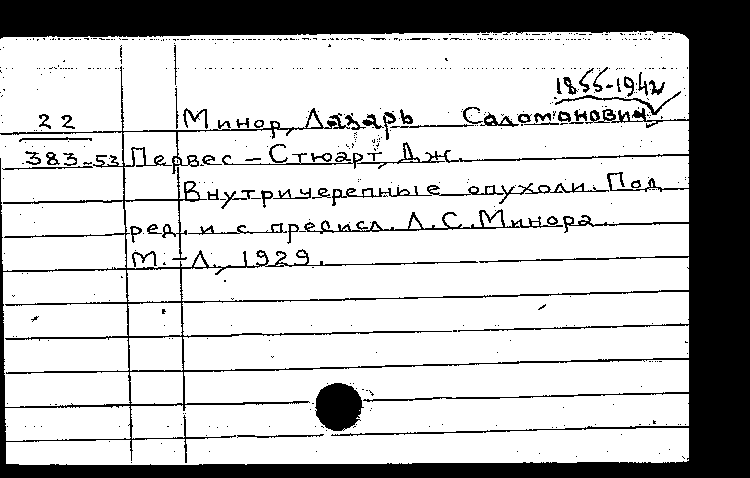 1855-1942
22 Минор, Лазарь Саломонович
383-53 Первес - Стюарт, Дж.
Внутричерепные опухоли. Под
ред. и с предисл. Л.С. Минора.
М.-Л., 1929.